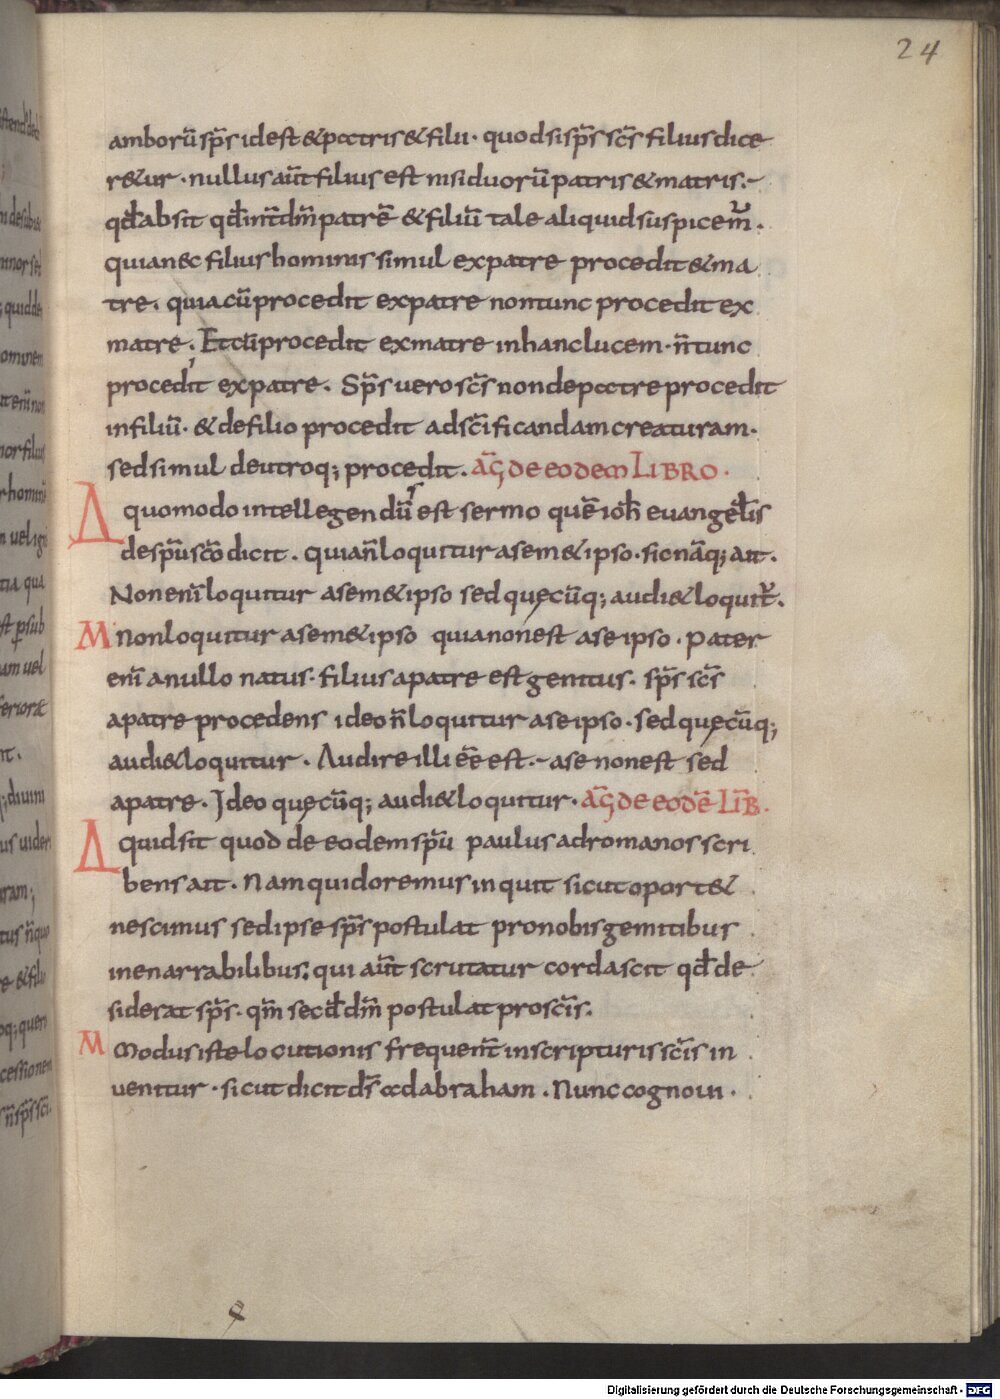 24
amborū sp̄s id est & patris & filii · quod si sp̄s sc̄s filius dice
r&ur · nullus aūt filius est nisi duorū patris & matris :-
qđ absit qđ int̄ dm̄ patrē & filiū tale aliquid suspicem̄ .
quia nec filius hominis simul ex patre procedit & ma
tre . quia cū procedit ex patre non tunc procedit ex
matre . Et cū procedit ex matre in hanc lucem · n̄ tunc
procedit ex patre . Sp̄s vero sc̄s non de patre procedit
in filiū · & de filio procedit ad sc̄ificandam creaturam ·
sed simul de utroq; procedit . AḠ de eodem LIBRO .
Δ quomodo intellegendus est sermo quē ioh̄ evangelis
de sp̄u sc̄o dicit . quia n̄ loquitur a sem&ipso · sic nāq; ait .
Non enī loquitur a sem&ipso sed quęcūq; audi& loquit̄ .
M Non loquitur a sem&ipso quia non est a se ipso . pater
enī a nullo natus · filius a patre est genitus . sp̄s sc̄s
a patre procedens ideo n̄ loquitur a se ipso · sed quęcūq;
audi& loquitur . Audire illi eē est .- a se non est sed
a patre . Ideo quęcūq; audi& loquitur · AḠ de eodē LIB̄ .
Δ quid sit quod de eodem sp̄u paulus ad romanos scri
bens ait . Nam quid oremus inquit sicut oport&
nescimus sed ipse sp̄s postulat pro nobis gemitibus
inenarrabilibus ; qui aūt scrutatur corda scit qđ de
siderat sp̄s · qm̄ secđ dm̄ postulat pro sc̄is .
M Modus iste locutionis frequent̄ in scripturis sc̄is in
venitur · sicut dicit ds̄ ad abraham . Nunc cognovi ·
Digitalisierung gefördert durch die Deutsche Forschungsgemeinschaft - DFG